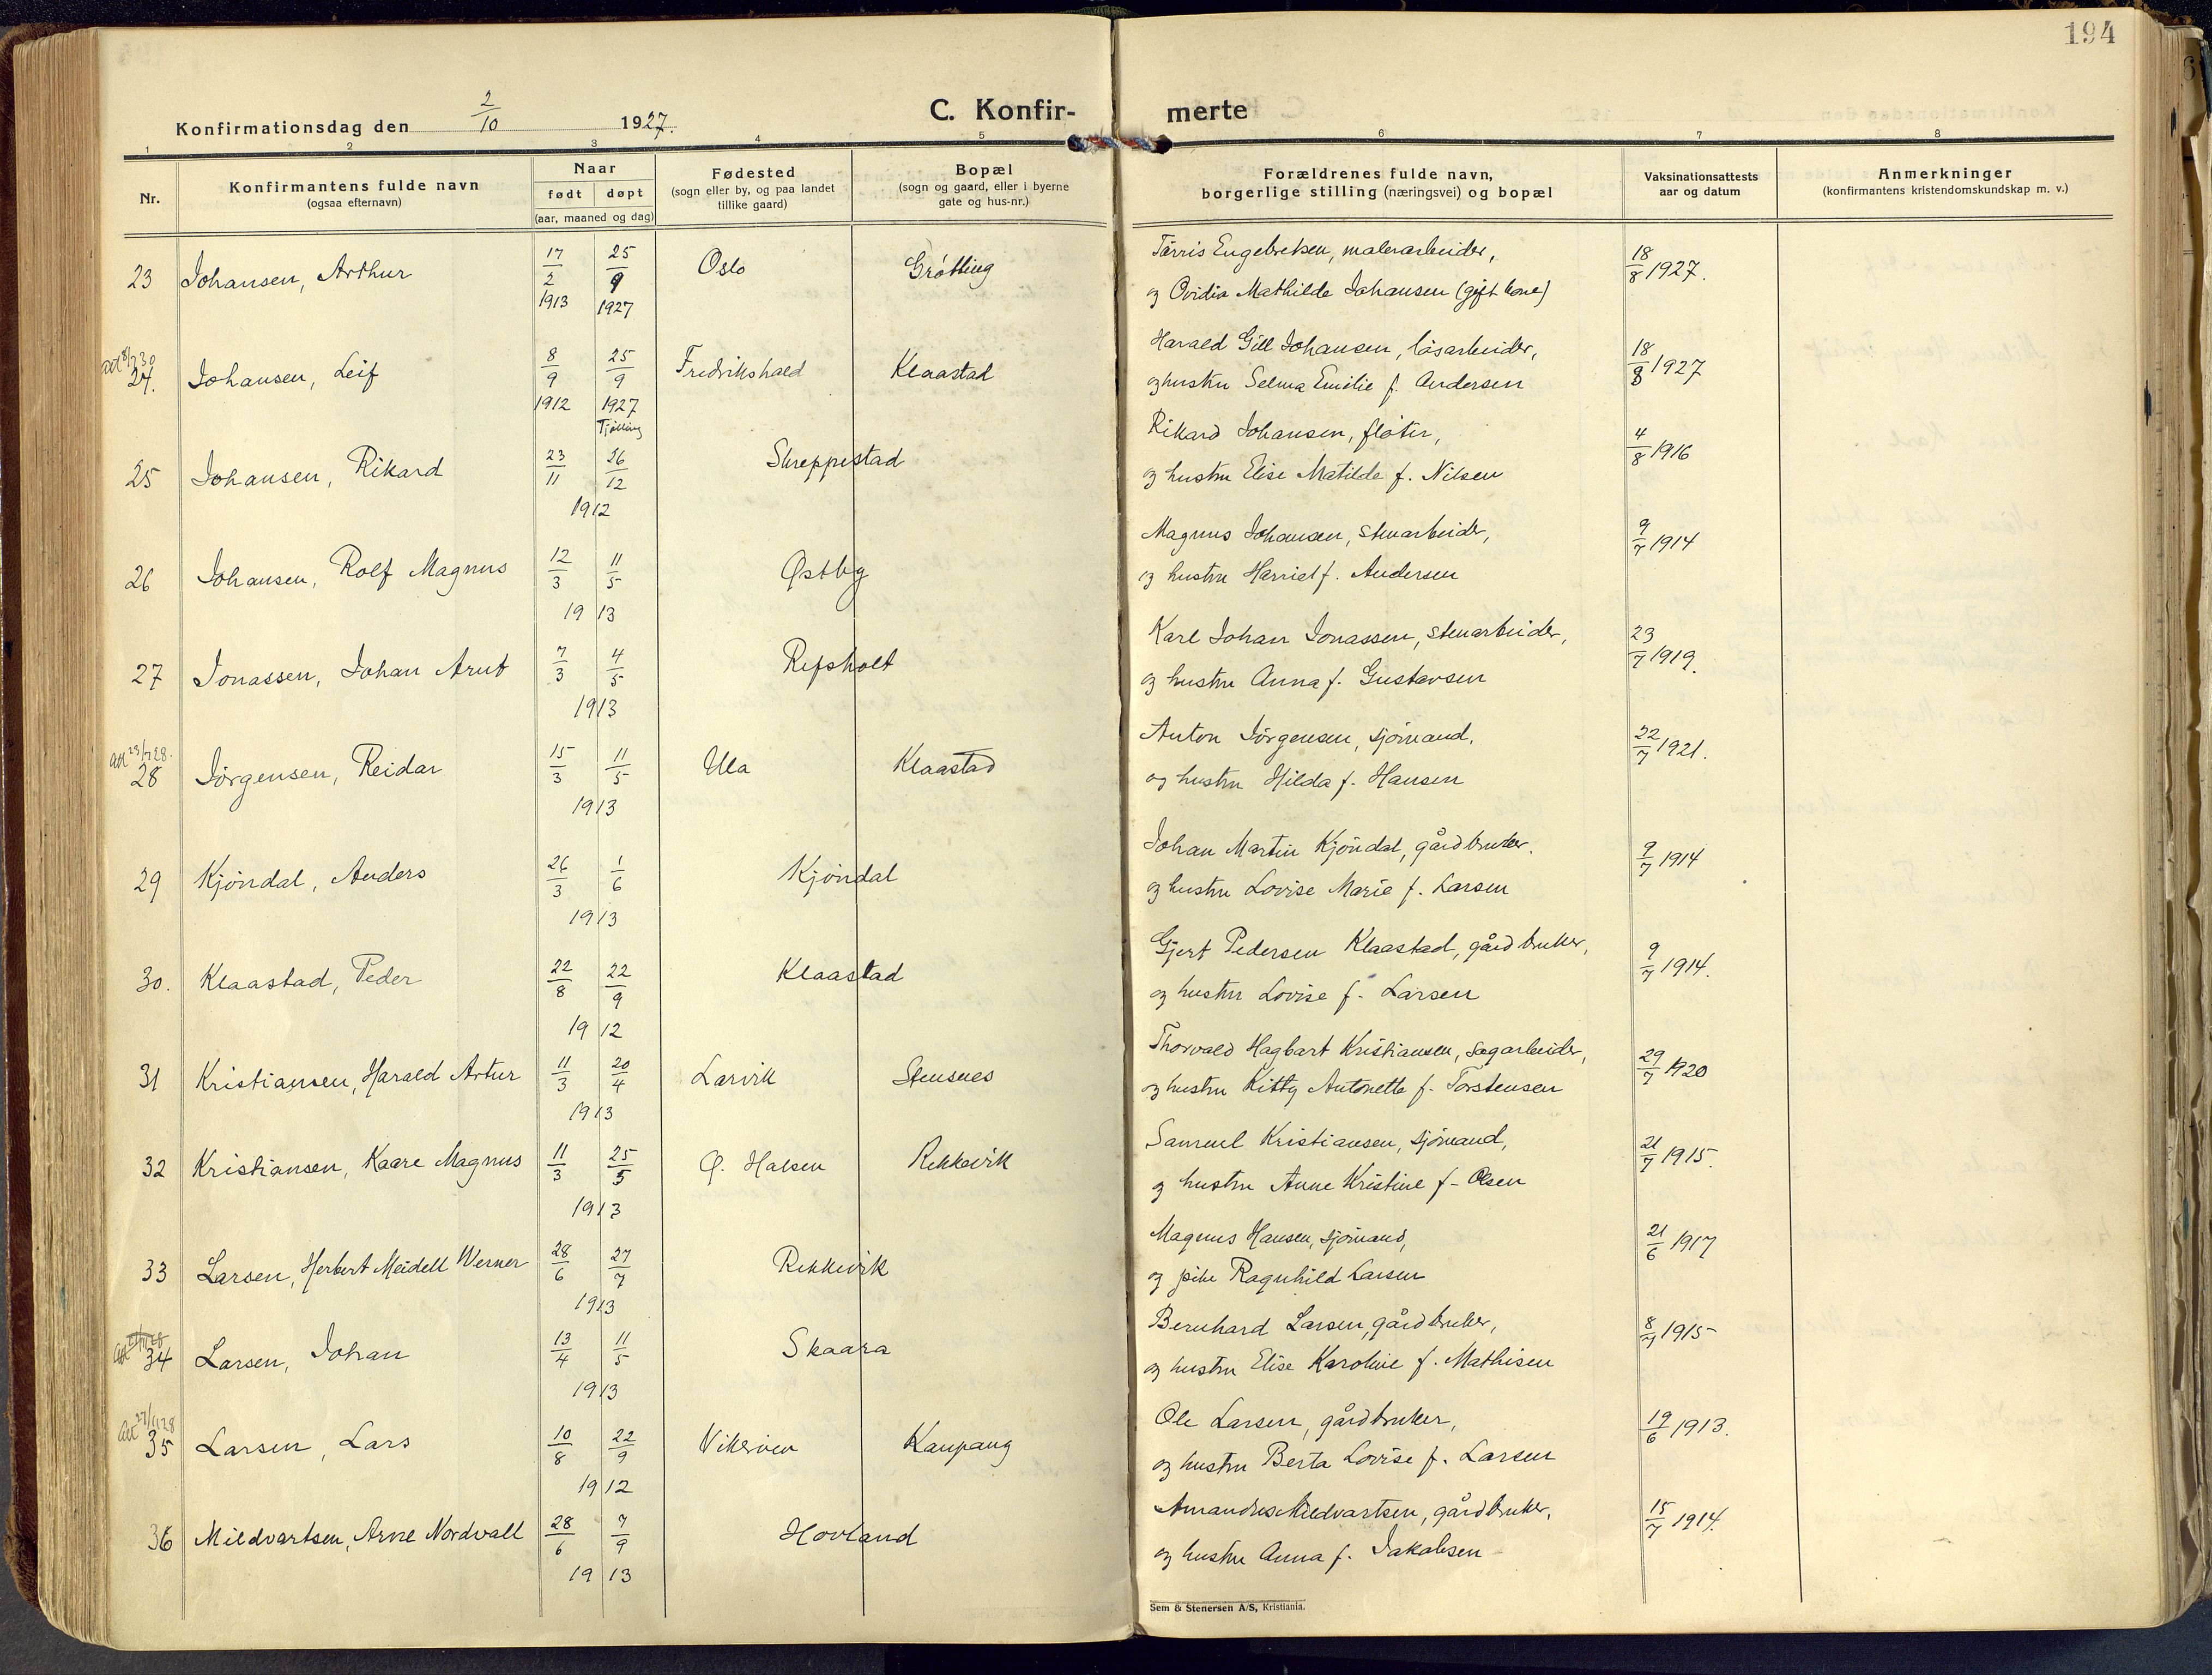 194
Konfirmationsdag den 2/10 1927.
C. Konfirmerte
1 2 3 4 5 6 7 8
Nr.
Konfirmantens fulde navn
(ogsaa efternavn)
Naar
født døpt
(aar, maaned og dag)
Fødested
(sogn eller by, og paa landet
tillike gaard)
Bopæl
(sogn og gaard, eller i byerne
gate og hus-nr.)
Forældrenes fulde navn,
borgerlige stilling (næringsvei) og bopæl
Vaksinationsattests
aar og datum
Anmerkninger
(konfirmantens kristendomskundskap m. v.)
23 Johansen, Arthur 17/2 1913 25/9 1927 Oslo Grøtting Engebretsen, malerarbeider, 18/8 1927.
og Ovidia Mathilde Johansen (gift kone)
24. Johansen, Leif 8/9 1912 25/9 1927 Tjølling Fredrikshald Klaastad Harald Gill Johansen, løsarbeider, 18/8 1927
og hustru Selma Emilie f. Andersen
25 Johansen, Rikard 23/11 26/12 1912 Skreppestad Rikard Johansen, fløter, 4/8 1916
og hustru Elise Matilde f. Nilsen
26 Johansen, Rolf Magnus 12/3 11/5 1913 Østby Magnus Johansen, stenarbeider, 9/7 1914
og hustru Harriet f. Andersen
27 Jonassen, Johan Arnt 7/3 4/5 1913 Refsholt Karl Johan Jonassen, stenarbeider, 23/7 1919.
og hustru Anna f. Gustavsen
28 Jørgensen, Reidar 15/3 11/5 1913 Ula Klaastad Anton Jørgensen, sjømand, 22/7 1921.
og hustru Hilda f. Hansen
29 Kjøndal, Anders 26/3 1/6 1913 Kjøndal Johan Martin Kjøndal, gårdbruker. 9/7 1914
og hustru Lovise Marie f. Larsen
30. Klaastad, Peder 22/8 22/9 1912 Klaastad Gjert Pedersen Klaastad, gårdbruker, 9/7 1914.
og hustru Lovise f. Larsen
31 Kristiansen, Harald Artur 11/3 20/4 1913 Larvik Stensnes Thorvald Hagbart Kristiansen, sagarbeider, 29/7 1920
og hustru Kitty Antonette f. Torstensen
32 Kristiansen, Kaare Magnus 11/3 25/5 1913 Ø. Halsen Rekkevik Samuel Kristiansen, sjømand, 21/7 1915.
og hustru Anne Kristine f. Olsen
33 Larsen, Herbert Meidell Werner 28/6 27/7 1913 Rekkevik Magnus Hansen, sjømand, 21/6 1917
og pike Ragnhild Larsen
34 Larsen, Johan 13/4 11/5 1913 Skaara Bernhard Larsen, gårdbruker, 8/7 1915
og hustru Elise Karoline f. Mathisen
35 Larsen, Lars 10/8 22/9 1912 Vikersøen Kaupang Ole Larsen, gårdbruker, 19/6 1913.
og hustru Berta Lovise f. Larsen
36 Mildvartsen, Arne Nordvall 28/6 7/9 1913 Hovland Amandus Mildvartsen, gårdbruker, 15/7 1914.
og hustru Anna f. Jakobsen
Sem & Stenersen A/S, Kristiania.